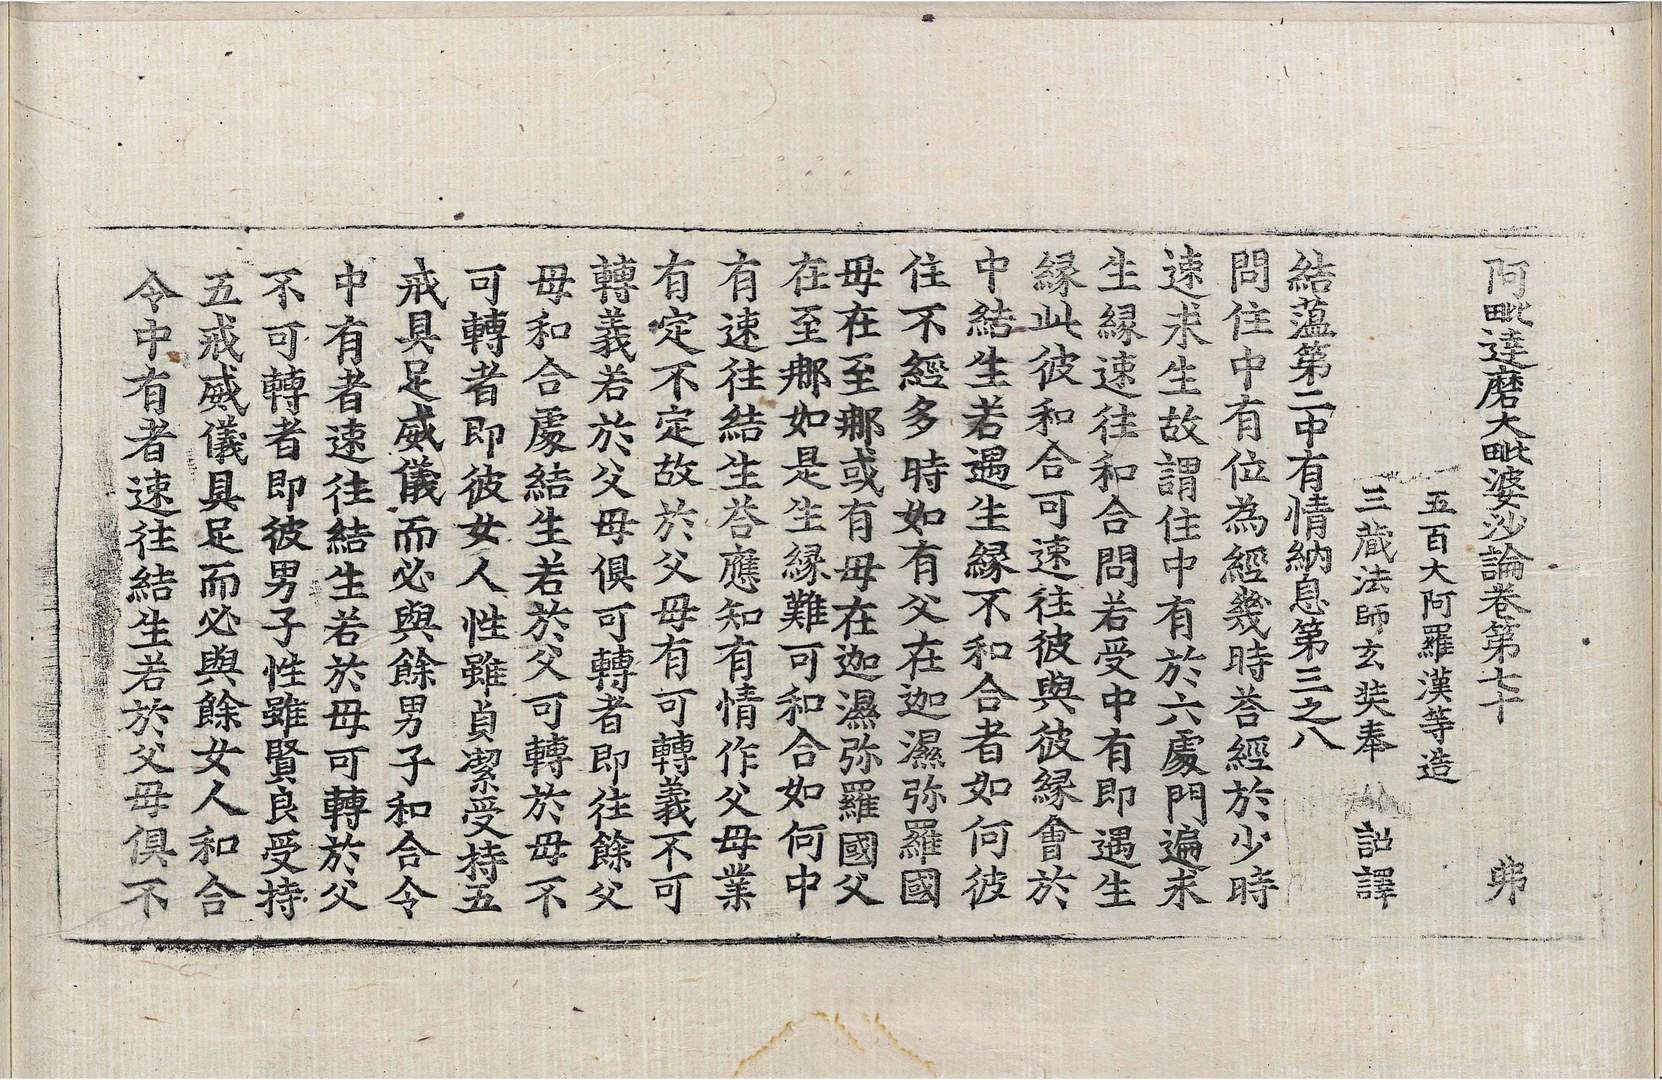 阿毗達磨大毗婆沙論卷第七十　弗
五百大阿羅漢等造
三藏法師玄奘奉　詔譯
結蘊第二中有情納息第三之八
問住中有位為經幾時荅經於少時
速求生故謂住中有於六處門遍求
生緣速往和合問若受中有即遇生
緣此彼和合可速往彼與彼緣會於
中結生若遇生緣不和合者如何彼
住不經多時如有父在迦濕弥羅國
母在至那或有母在迦濕弥羅國父
在至那如是生緣難可和合如何中
有速往結生荅應知有情作父母業
有定不定故於父母有可轉義不可
轉義若於父母俱可轉者即往餘父
母和合處結生若於父可轉於母不
可轉者即彼女人性雖貞潔受持五
戒具足威儀而必與餘男子和合令
中有者速往結生若於母可轉於父
不可轉者即彼男子性雖賢良受持
五戒威儀具足而必與餘女人和合
令中有者速往結生若於父母俱不